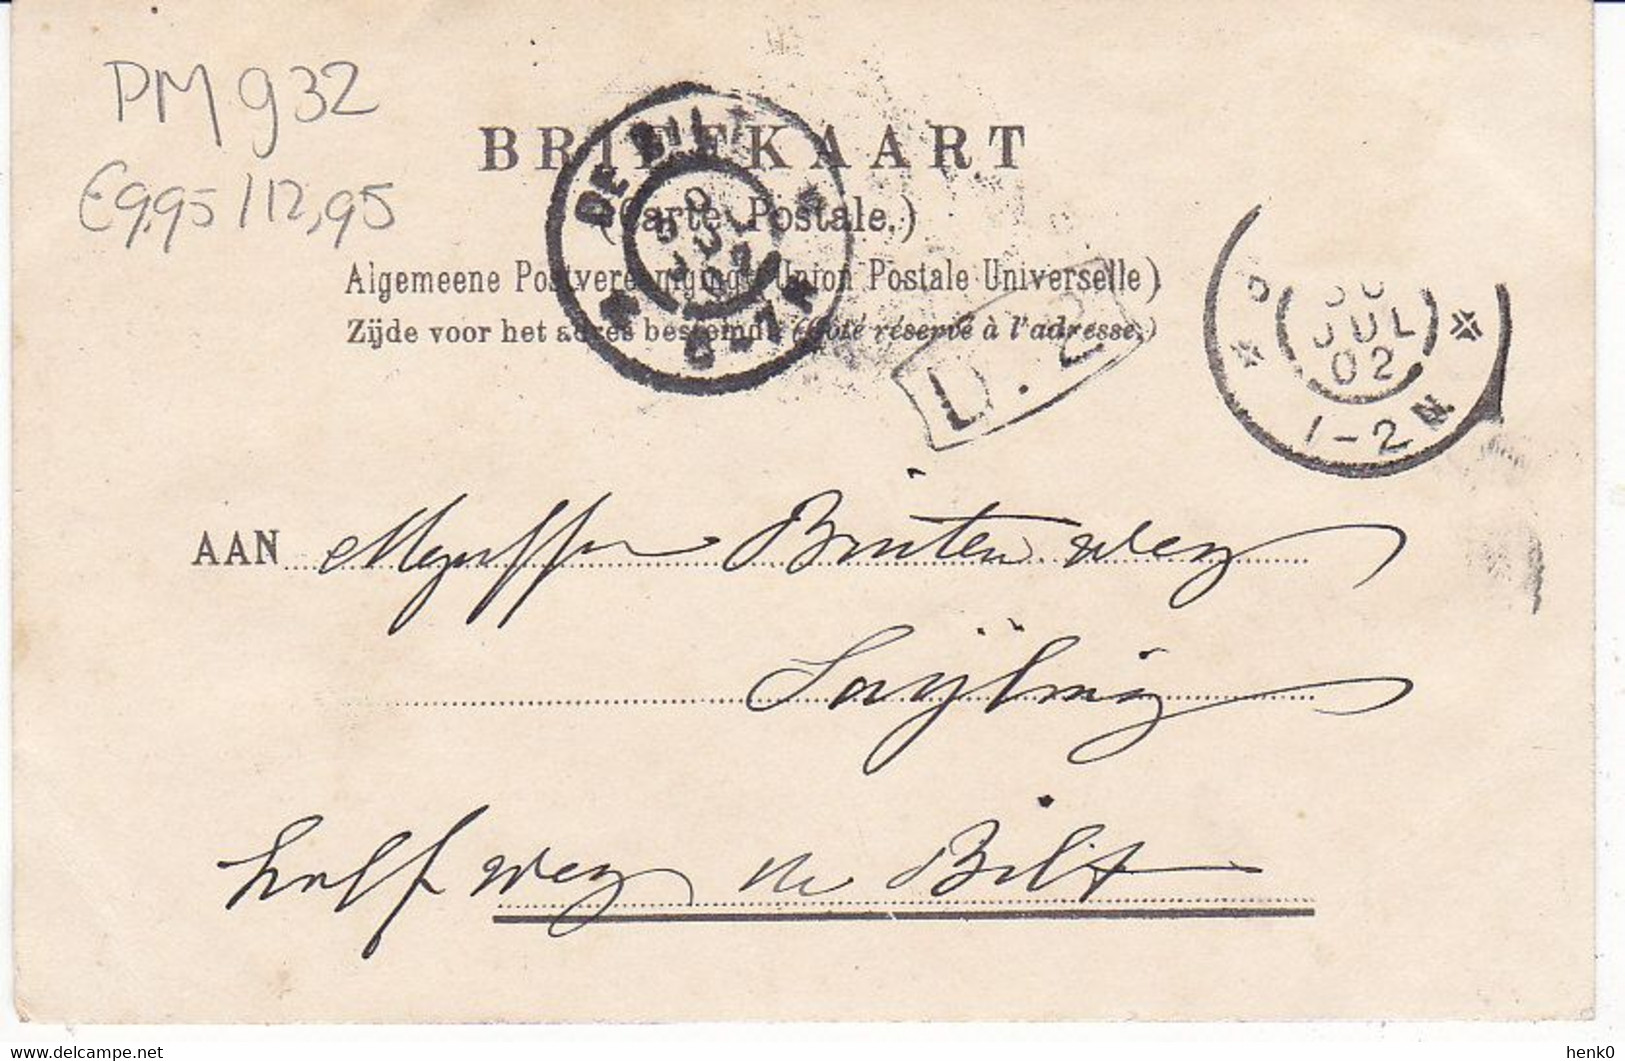 PM 932
€9,95 / 12,95
BRIEFKAART
(Carte Postale.)
Algemeene Postvereeniging (Union Postale Universelle)
Zijde voor het adres bestemd. (Côté réservé à l'adresse.)
DE BILT
JUL
6-7 N
D. 2
JUL
02
1-2 N
AAN Mejuffr Buitenweg
halfweg de Bilt
www.delcampe.net
henk0